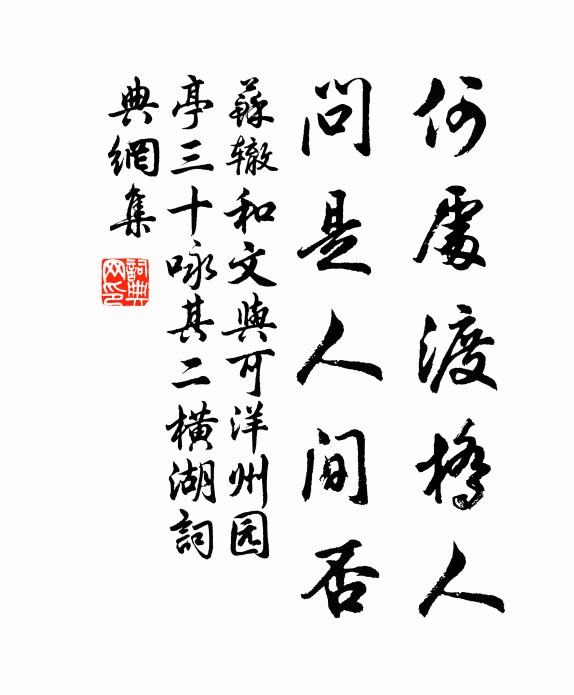 何處渡橋人
問是人间否
蘇辙和文與可洋州园
亭三十咏其二橫湖詞
典網集
詞典
网印